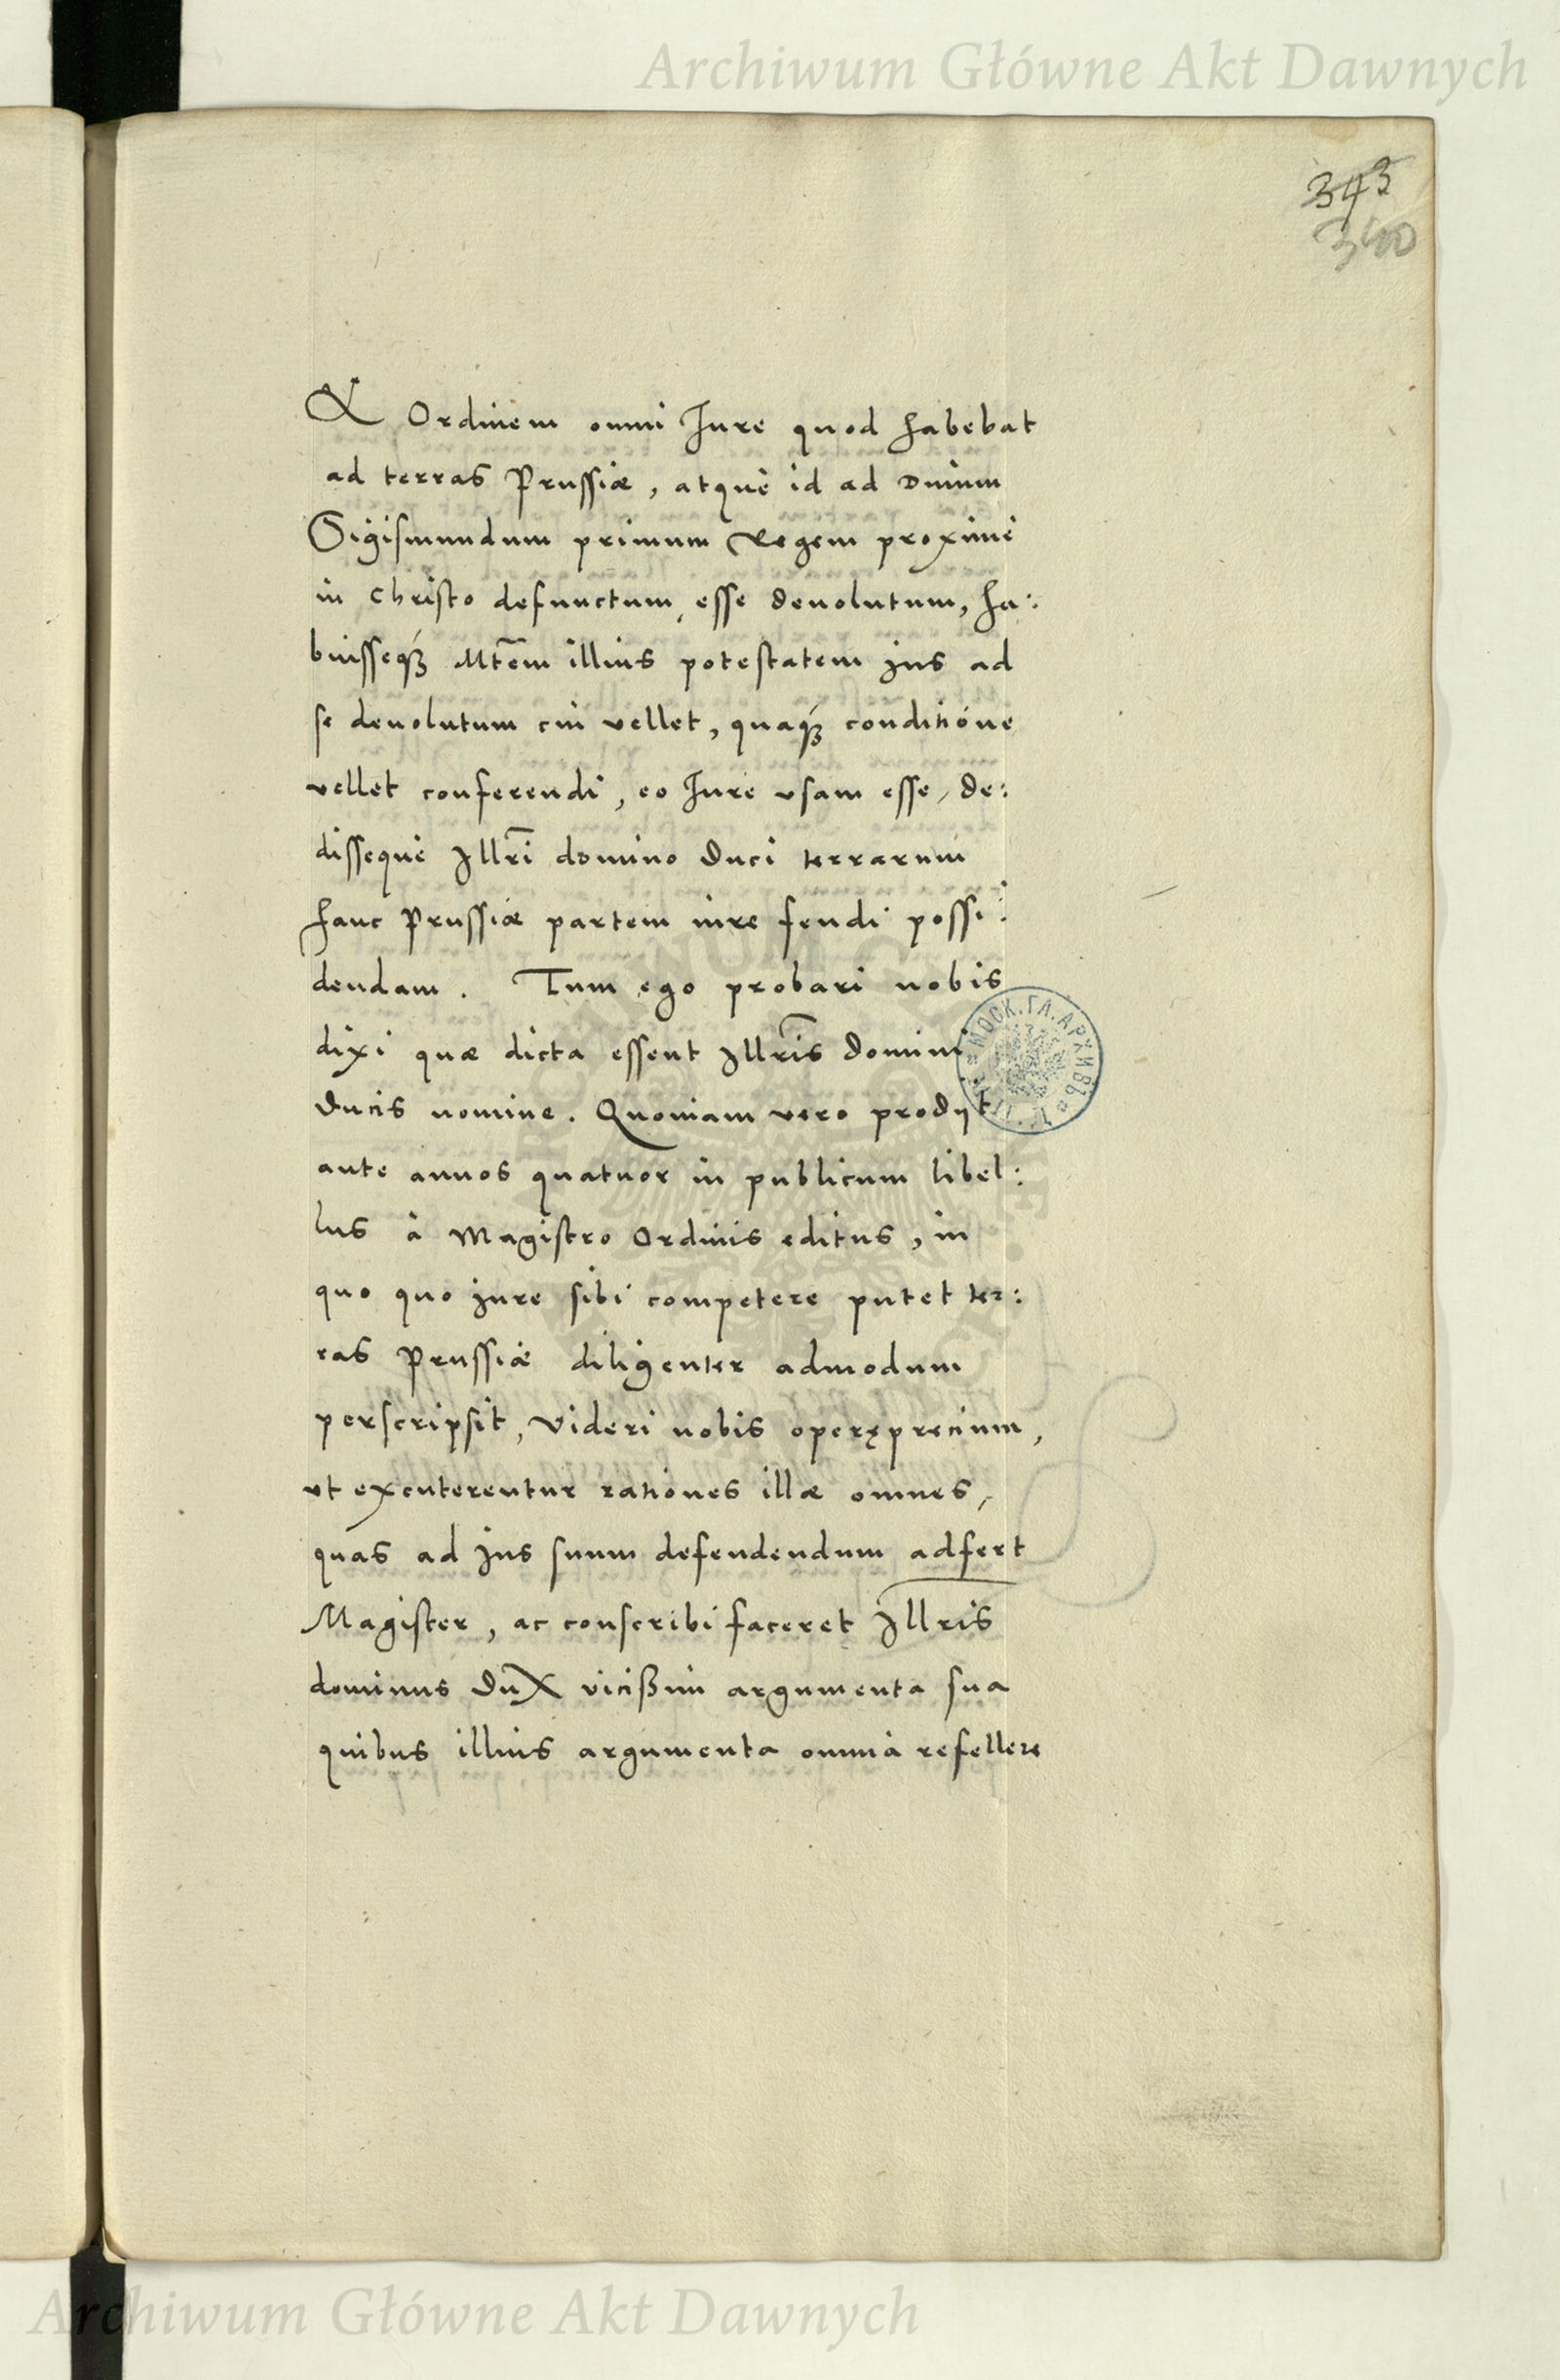 Archiwum Główne Akt Dawnych
343
340
& Ordinem omni Iure quod habebat
ad terras Prussiæ, atque id ad Dninum
Sigismundum primum Regem proxime
in Christo defunctum, esse deuolutum, ha:
buisseq́ꝫ Mtem̄ illius potestatem jus ad
se deuolutum cui vellet, quaq́ꝫ conditióne
vellet conferendi, eo Iure vsam esse, de:
disseque Illrī domino Duci terrarum
hanc Prussiæ partem iure feudi possi:
dendam. Tum ego probari nobis
dixi quæ dicta essent Illrīs domini
Ducis nomine. Quoniam vero prodijt
ante annos quatuor in publicum libel:
lus à Magistro Ordinis editus, in
quo quo jure sibi competere putet ter:
ras Prussiæ diligenter admodum
perscripsit, videri nobis operęprecium,
vt excuterentur rationes illæ omnes,
quas ad jus suum defendendum adfert
Magister, ac conscribi faceret Illris
dominus Dux vicißim argumenta sua
quibus illius argumenta omnia refellere
МОСК. ГЛ. АРХИВЪ
Archiwum Główne Akt Dawnych